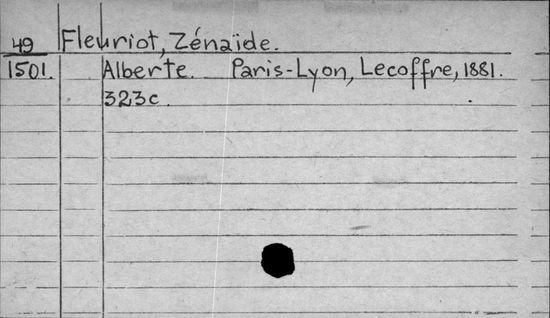 49 Fleuriot, Zénaïde.
1501. Alberte. Paris-Lyon, Lecoffre, 1881.
323c.